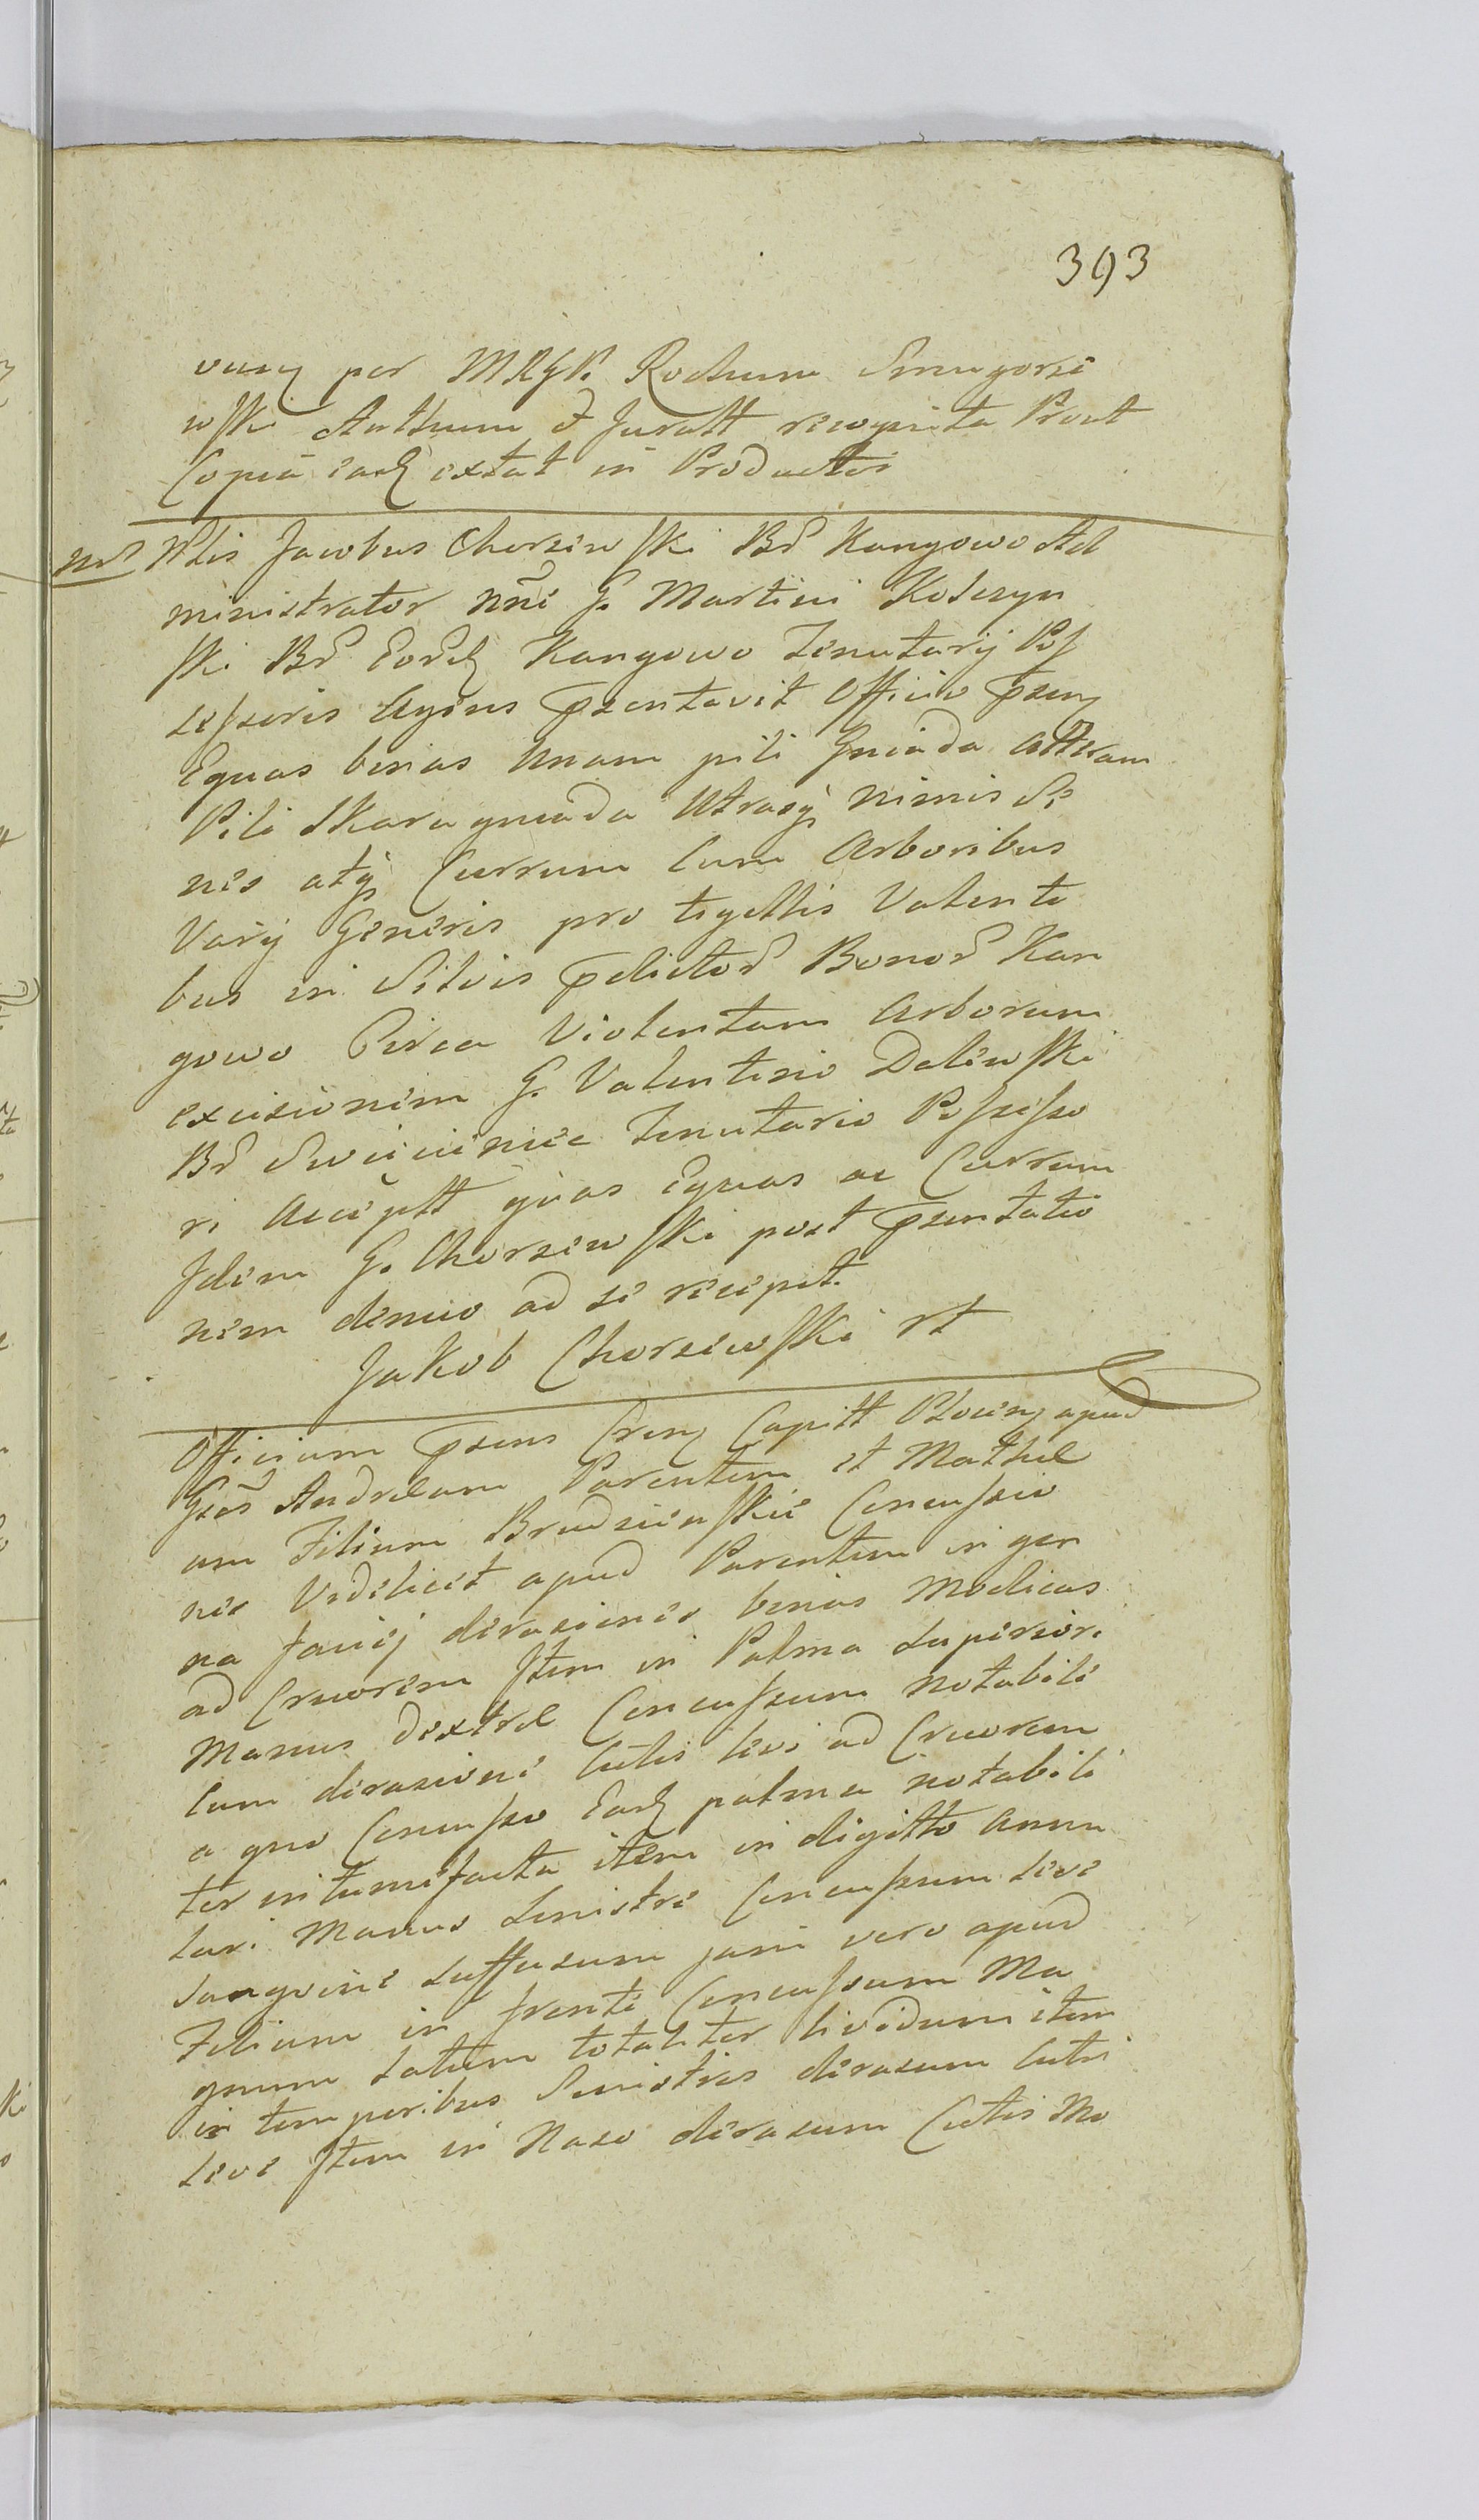 393
per MRGP. Rochum Smugorze
wski Anthum & Juratt recognita Prout
Copia ead extat in Productis
Nlis Jacobus Chorzewski Br Kangowo Ad
ministrator nne G. Martini Kolczyn
ski Br Eord Kangowo Tenutarij Pos
sessoris Agens pzentavit Officio pzen
Equas binas Unam pili Gniada alteram
Pili Skarogniada Utrasq nimis Se
nes atq Currum cum Arboribus
Varij Generis pro tigellis Valenti
bus in Silvis pdictor Bonor Kan
gowo Circa Violentam Arborum
excisionem G. Valentino Dalewski
Br Swiecienice Tenutario Possesso
ri Acceptt quas Equas ac Currum
Idem G. Chorzewski post pzentatio
nem denuo ad se recepit.
Jakob Chorzewski
Officium pzens Cren Capitt Plocen apud
Gsos Andream Parentem et Mathe
um Filium Brudzienskie Concussio
nes Videlicet apud Parentem in ge
na faciej derasiones binas Modicas
ad Cruorem Item in Palma superiori
Manus dextre Concussum notabile
cum derasione cutis levi ad Cruorem
a quo Concusso Ead palma notabili
ter intumefacta item in digitto Annu
lari Manus sinistre Concussum leve
sangvine suffusum jam vero apud
Filium in fronte Concussum Ma
gnum Latum totaliter lividum item
in temporibus Sinistris derasum Cutis
leve Item in Naso derasum Cutis Mo